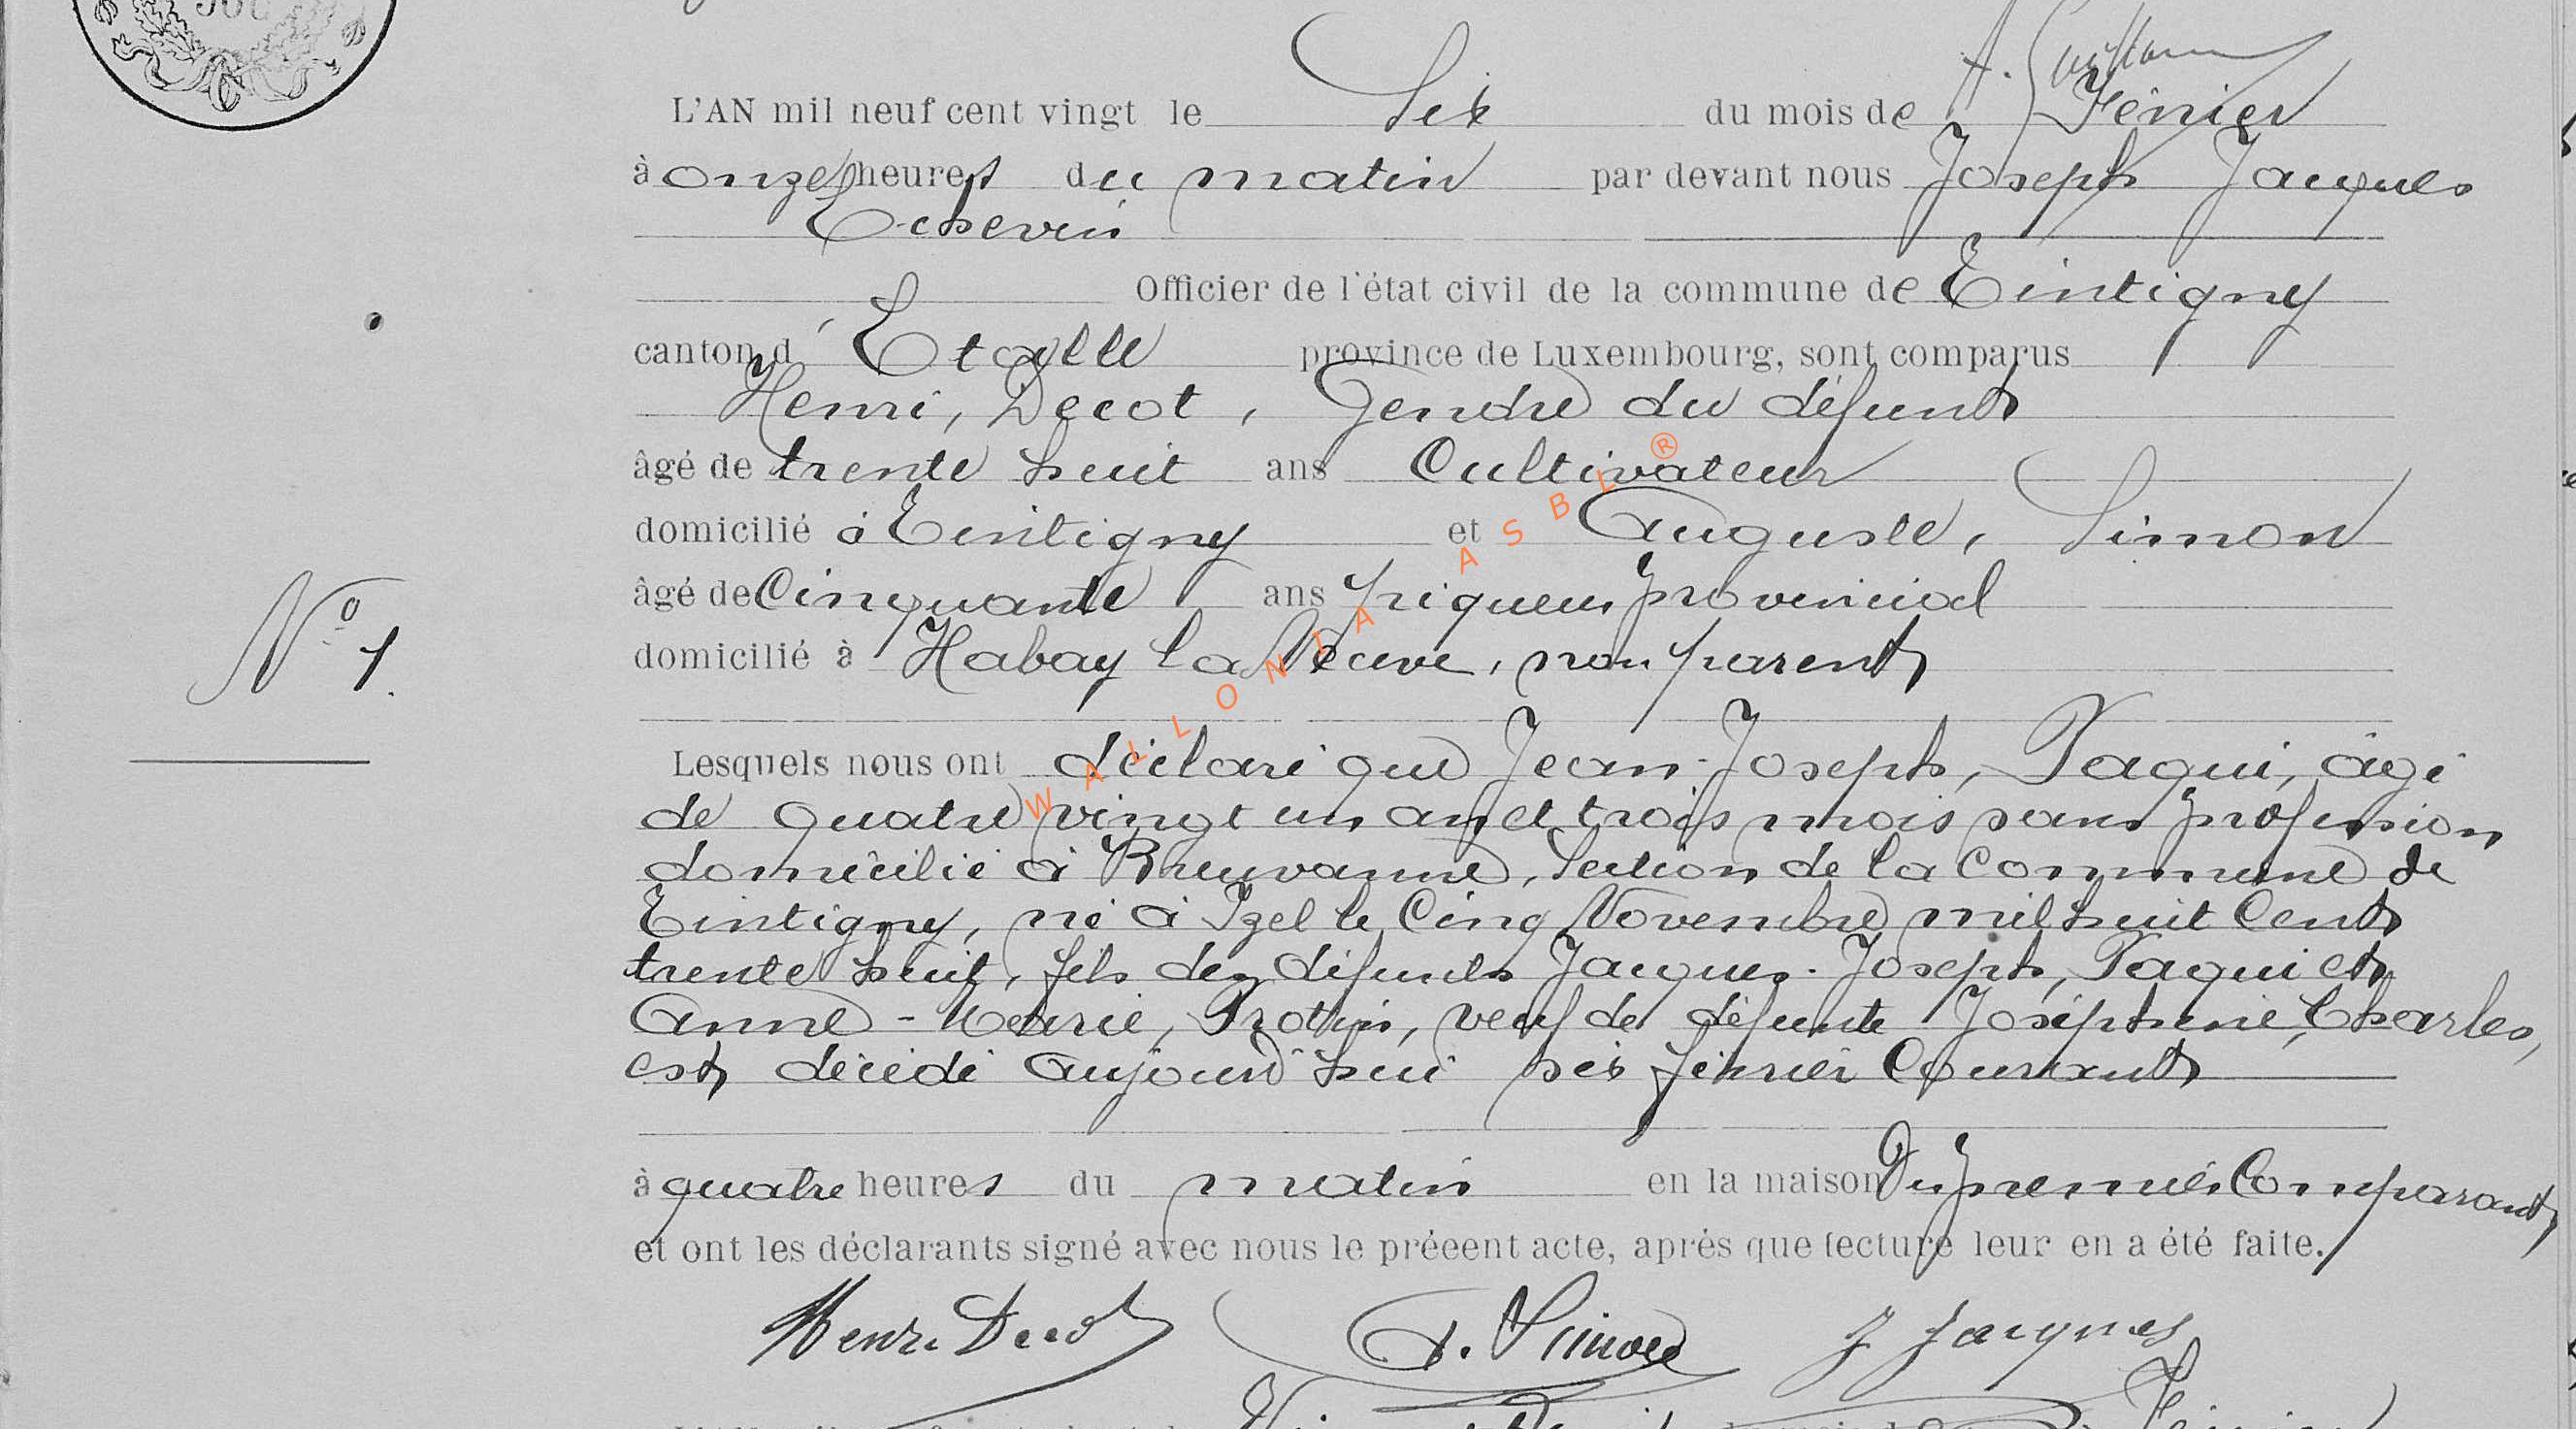 A. Guillaume
L'AN mil neuf cent vingt le Six du mois de Février
à onze heures du matin par devant nous Joseph Jacques
Echevin
Officier de l'état civil de la commune de Tintigny
canton d'Etalle province de Luxembourg, sont comparus
Henri, Decot, Gendre du défunt
âgé de trente huit ans Cultivateur
domicilié à Tintigny et Auguste, Simon
âgé de Cinquante ans piqueur provincial
domicilié à Habay la Neuve, non parent
N° 1.
Lesquels nous ont déclaré que Jean-Joseph, Paqui, âgé
de quatre vingt un ans et trois mois sans profession
domicilié à Breuvanne, Section de la Commune de
Tintigny, né à Izel le Cinq Novembre mil huit Cent
trente huit, fils des défunts Jacques-Joseph, Paqui et
Anne-Marie, Protin, veuf de défunte Joséphine, Charles,
est décédé aujourd'hui six février Courant
à quatre heures du matin en la maison Du premier Comparant
et ont les déclarants signé avec nous le préeent acte, après que lecture leur en a été faite.
Henri Decot A. Simon J Jacques
WALLONIA ASBL ®